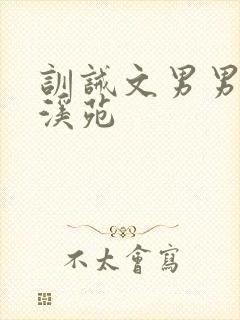 訓誡文男男
溪苑
不太會寫